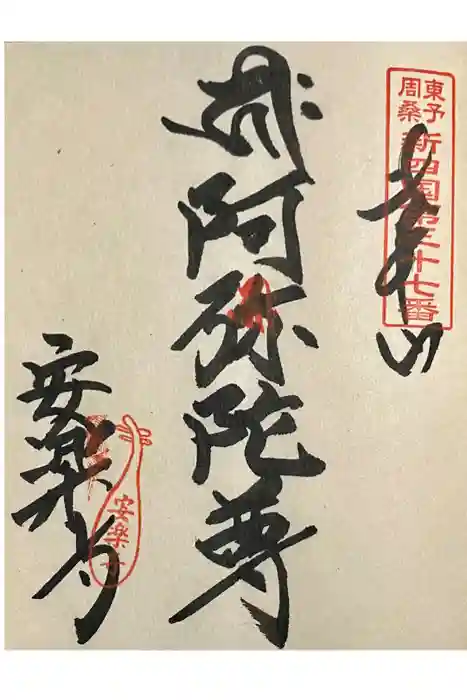 東予
周桑
新四国第三十七番
奉
阿弥陀尊
安楽寺
安楽寺